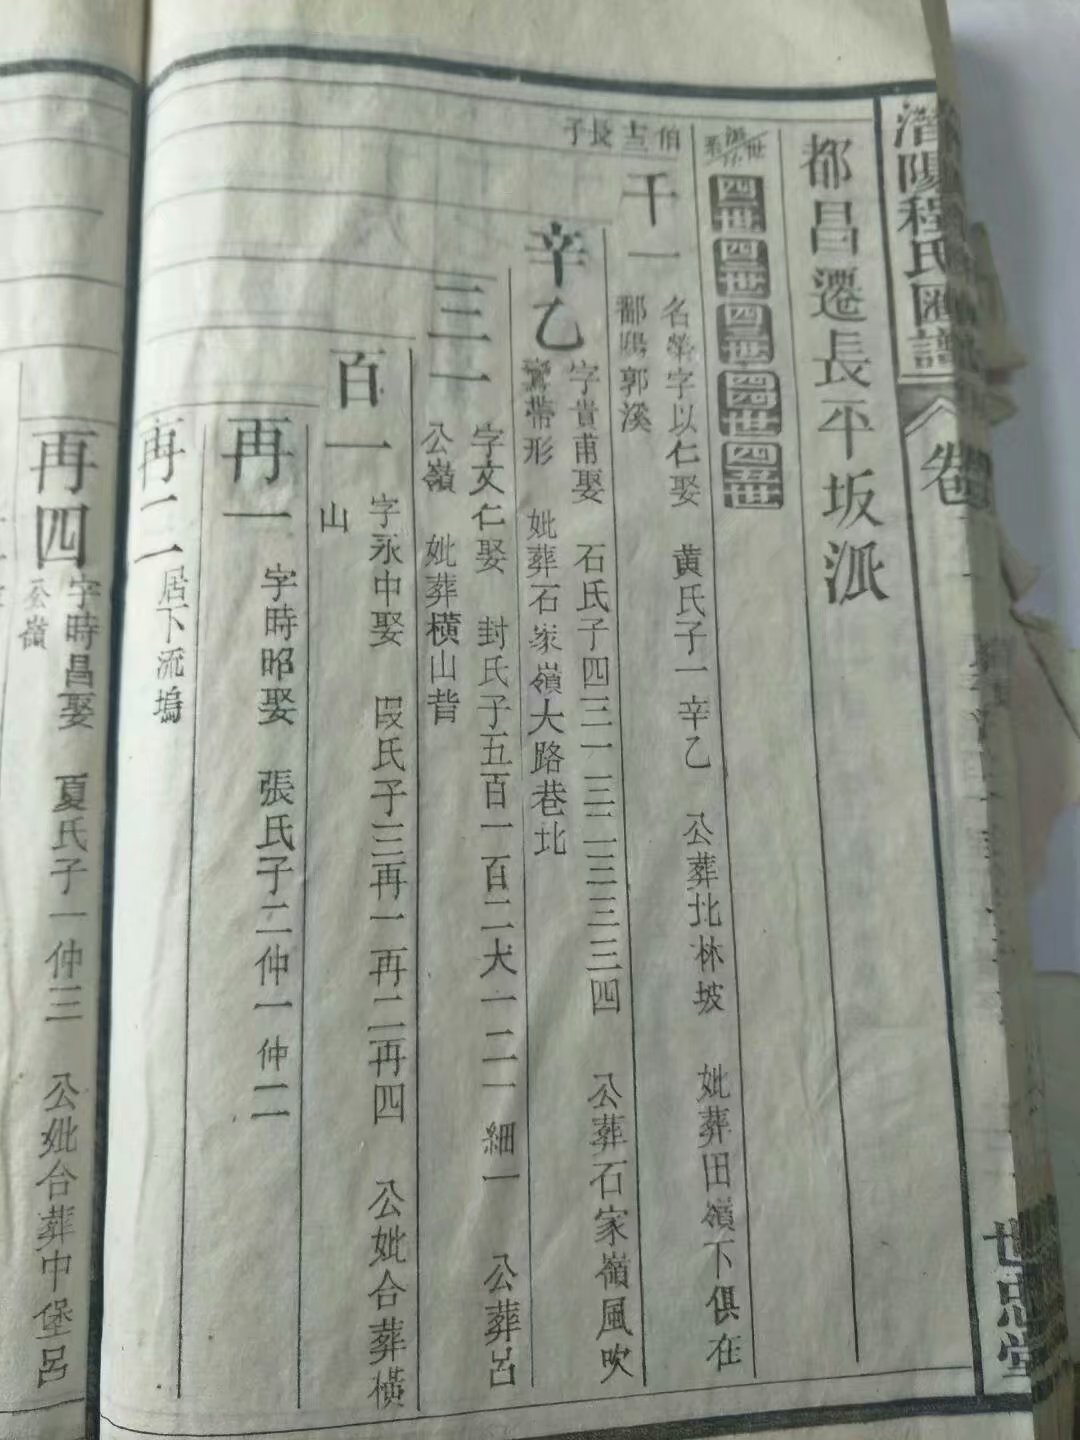 潛陽程氏匯譜
卷
世忠堂
都昌遷長平坂派
世
四世四世四世四世四世
伯吉長子
千一
名榮字以仁娶 黃氏子一辛乙 公葬北林坡 妣葬田嶺下俱在
鄱陽郭溪
辛乙
字貴甫娶 石氏子四三一三二三三三四 公葬石家嶺風吹
鸞帶形 妣葬石家嶺大路巷北
三一
字文仁娶 封氏子五百一百二大一二一細一 公葬呂
公嶺 妣葬橫山背
百一
字永中娶 段氏子三再一再二再四 公妣合葬橫
山
再一
字時昭娶 張氏子二仲一仲二
再二
居下流塢
再四
字時昌娶 夏氏子一仲三 公妣合葬中堡呂
公嶺